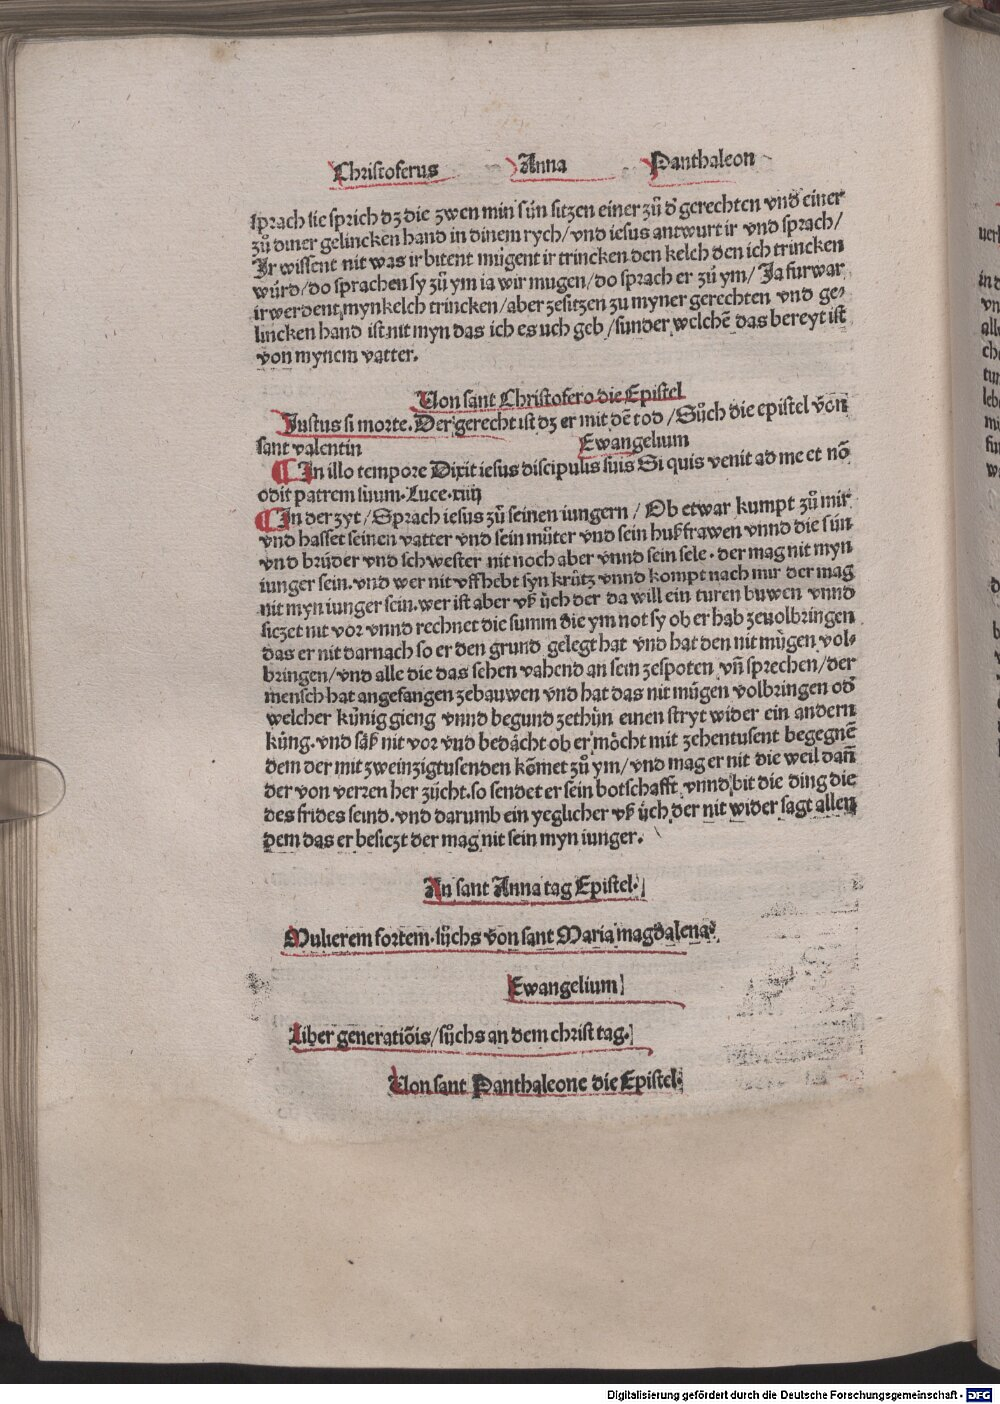 Christoferus Anna Panthaleon
sprach sie sprich dz die zwen min sün sitzen einer zů d' gerechten vnd einer
zů diner gelincken hand in dinem rych/ vnd iesus antwurt ir vnd sprach/
Ir wissent nit was ir bitent mügent ir trincken den kelch den ich trincken
würd/ do sprachen sy zů ym ia wir mugen/ do sprach er zů ym/ Ja furwar
ir werdent mynkelch trincken/ aber zesitzen zu myner gerechten vnd ge-
lincken hand ist nit myn das ich es uch geb/ sunder welchē das bereyt ist
von mynem vatter.
Von sant Christofero die Epistel
Justus si morte. Der gerecht ist dz er mit dē tod/ Sůch die epistel von
sant valentin Ewangelium
In illo tempore Dixit iesus discipulis suis Si quis venit ad me et nō
odit patrem suum. Luce. xiiij
In der zyt/ Sprach iesus zů seinen iungern/ Ob etwar kumpt zů mir
vnd hasset seinen vatter vnd sein můter vnd sein hußfrawen vnnd die sün
vnd brůder vnd schwester nit noch aber vnnd sein sele. der mag nit myn
iunger sein. vnd wer nit vffhebt syn krütz vnnd kompt nach mir der mag
nit myn iunger sein. wer ist aber vß ůch der da will ein turen buwen vnnd
siczet nit vor vnnd rechnet die summ die ym not sy ob er hab zeuolbringen
das er nit darnach so er den grund gelegt hat vnd hat den nit mügen vol-
bringen/ vnd alle die das sehen vahend an sein zespoten vn̄ sprechen/ der
mensch hat angefangen zebauwen vnd hat das nit mügen volbringen od'
welcher künig gieng vnnd begund zethůn einen stryt wider ein andern
küng. vnd säß nit vor vnd bedächt ob er möcht mit zehentusent begegnē
dem der mit zweinzigtusenden kōmet zů ym/ vnd mag er nit die weil dan̄
der von verren her züicht. so sendet er sein botschafft vnnd bit die ding die
des frides seind. vnd darumb ein yeglicher vß ůch der nit wider sagt allen
dem das er besiczt der mag nit sein myn iunger.
An sant Anna tag Epistel.
Mulierem fortem. sůchs von sant Maria magdalena.
Ewangelium
Liber generatiōis/ sůchs an dem christ tag.
Von sant Panthaleone die Epistel.
Digitalisierung gefördert durch die Deutsche Forschungsgemeinschaft - DFG